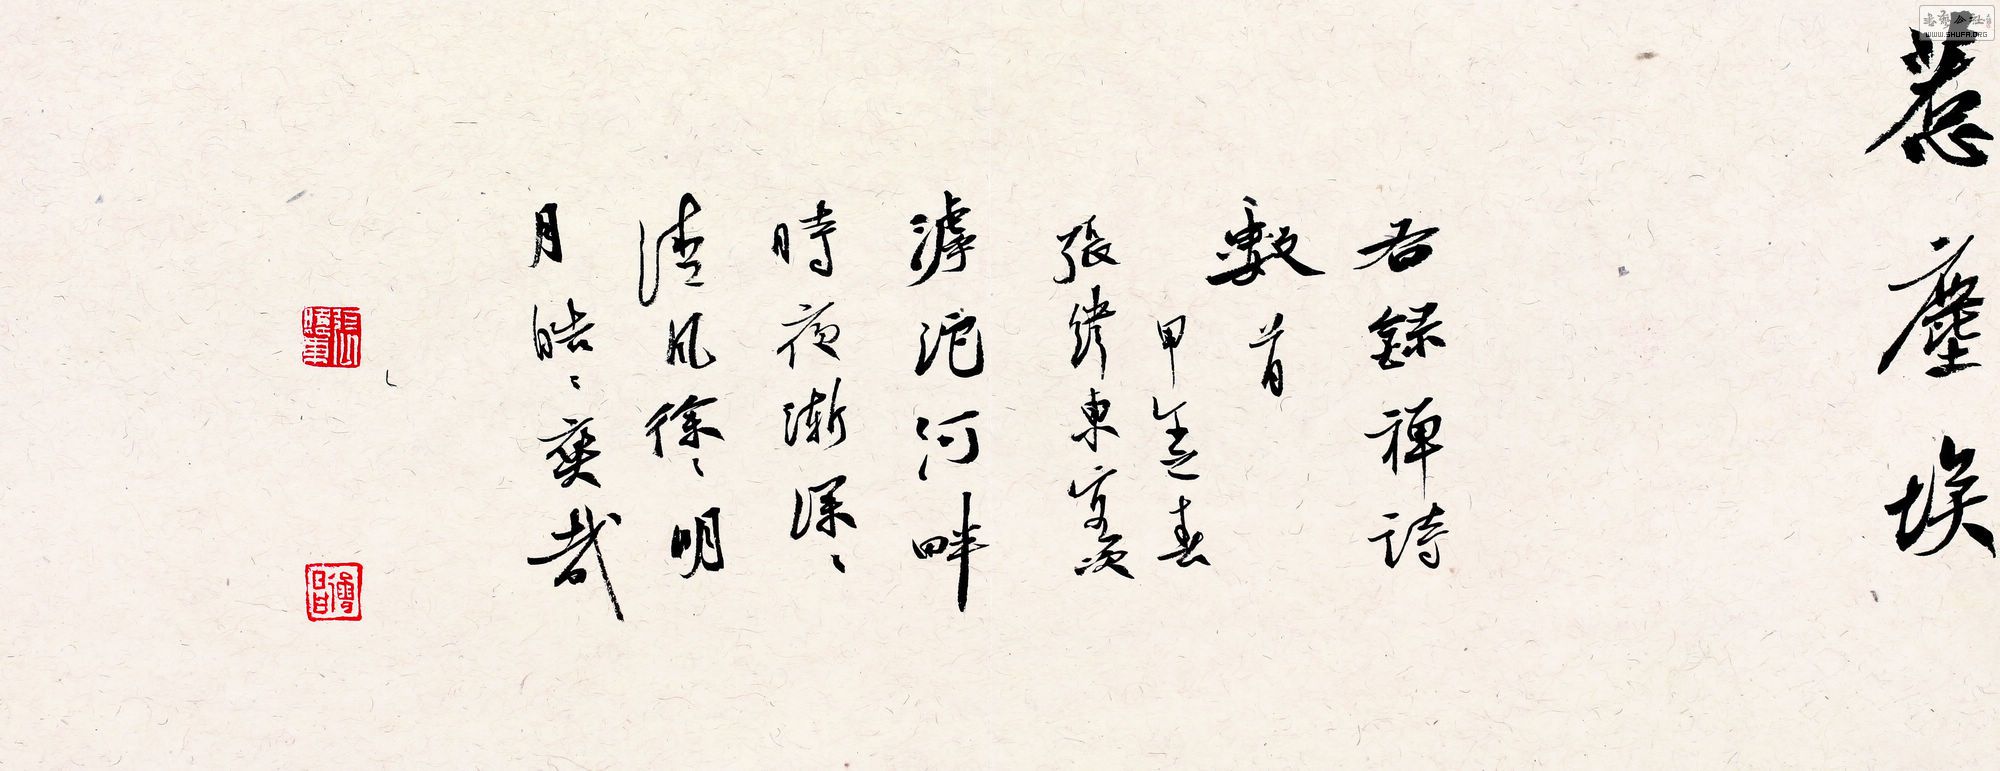 惹塵埃
右錄禪詩
數首
甲午春
張繼東寫於
滹沱河畔
時夜漸深、
清風徐、明
月皓、爽哉
WWW.SHUFA.ORG